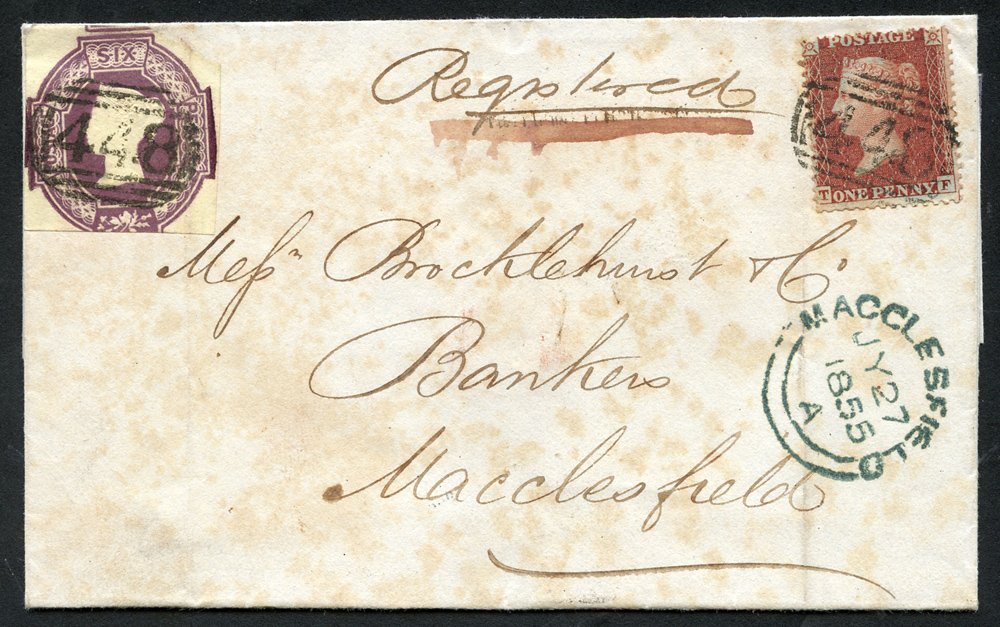 SIX
448
Registered
POSTAGE
448
T ONE PENNY F
Messrs Brocklehurst & Co
Bankers
Macclesfield
MACCLESFIELD
JY 27
1855
A